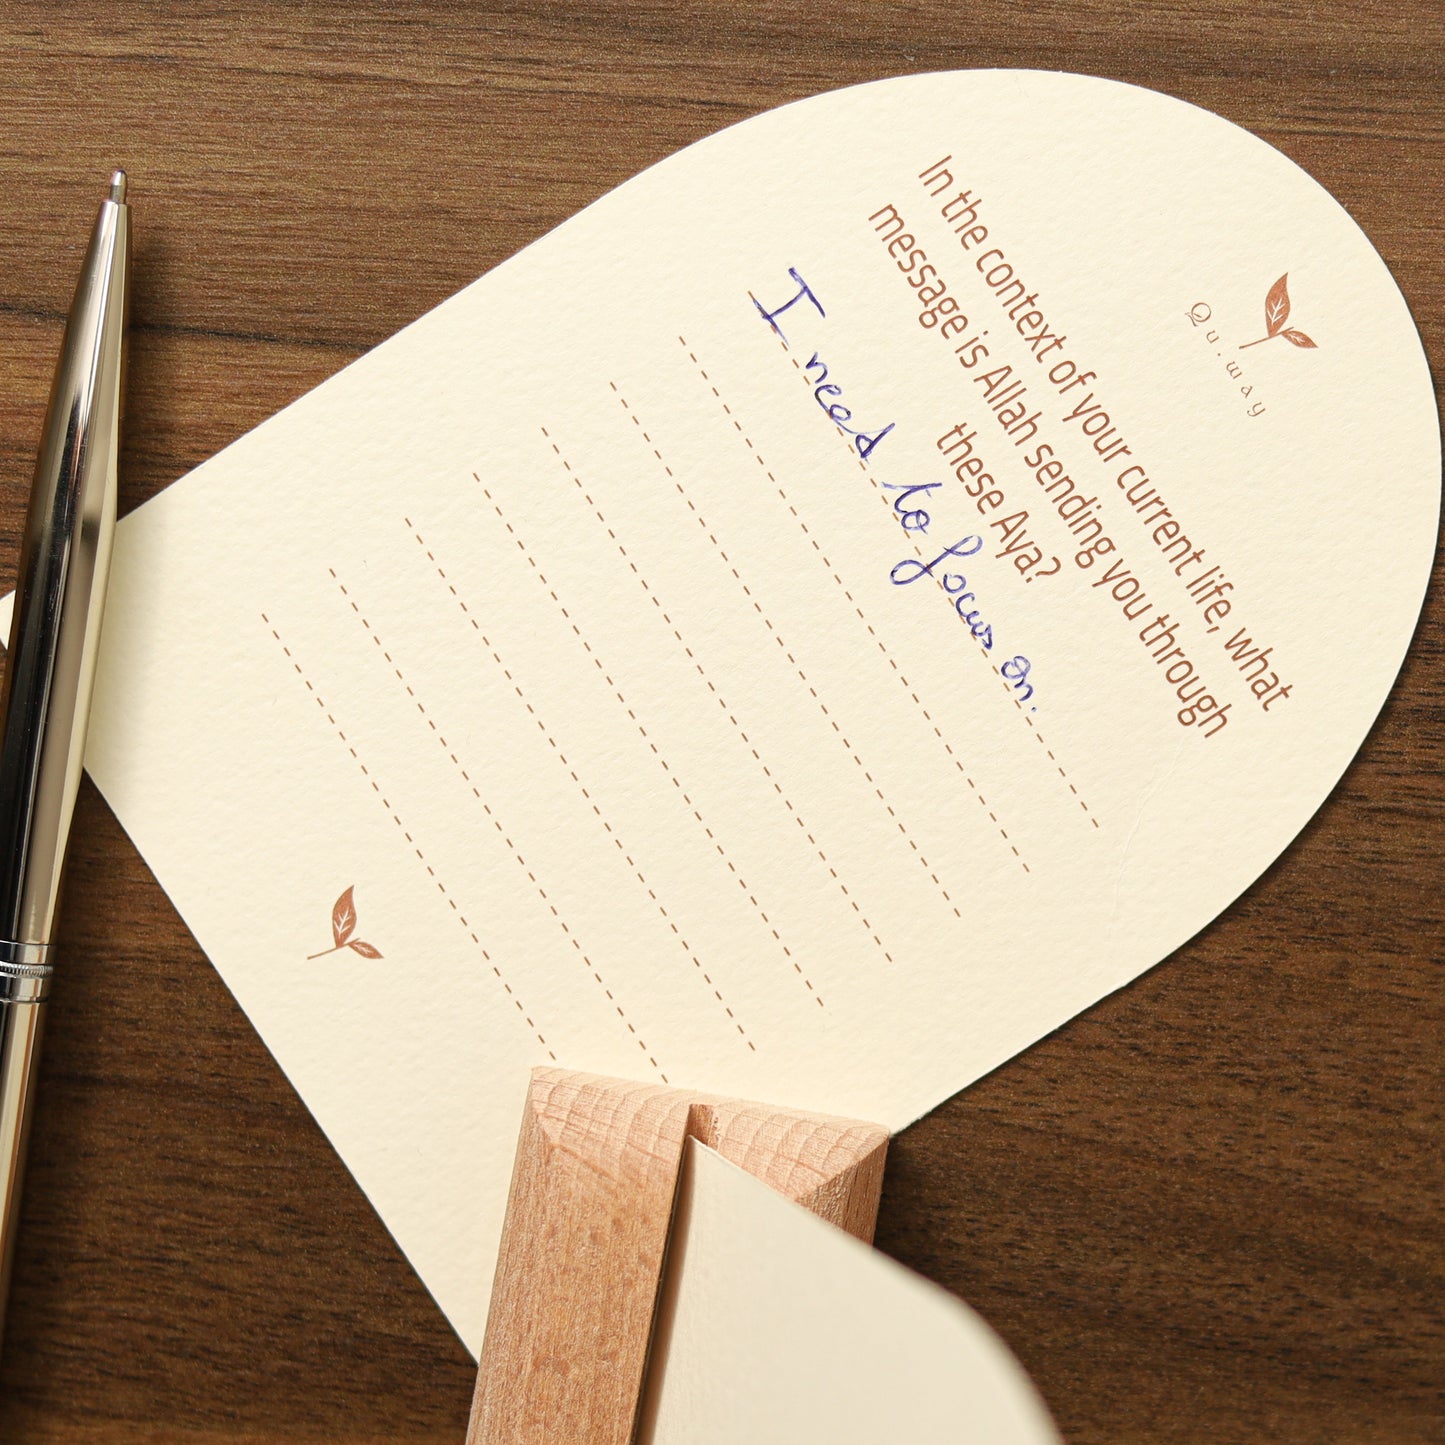 Qu.way
In the context of your current life, what
message is Allah sending you through
these Aya?
I need to focus on.